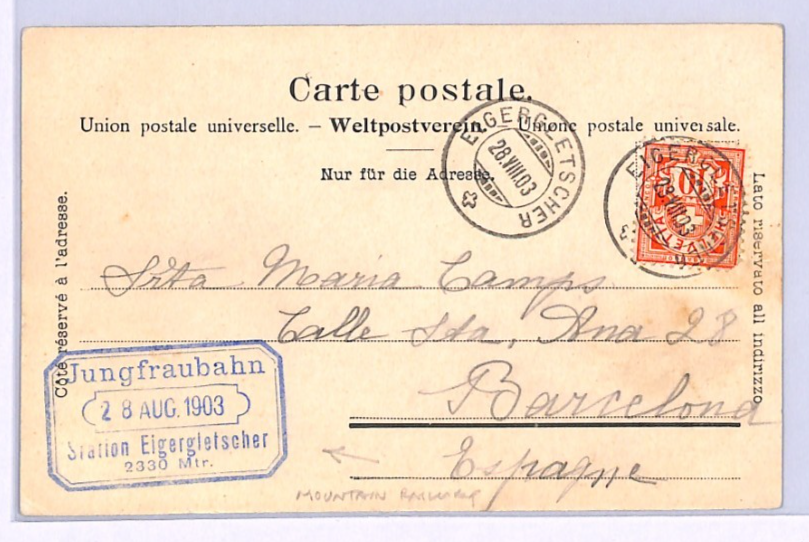 Carte postale.
Union postale universelle. – Weltpostverein. – Unione postale universale.
Nur für die Adresse.
EIGERGLETSCHER
28.VIII.03
EIGERGLETSCHER
28.VIII.03
10
HELVETIA
Côté réservé à l'adresse.
Lato riservato all indirizzo
Srta Maria Camps
Calle Sta, Ana 28
Barcelona
Espagne
Jungfraubahn
28 AUG. 1903
Station Eigergletscher
2330 Mtr.
MOUNTAIN RAILWAY